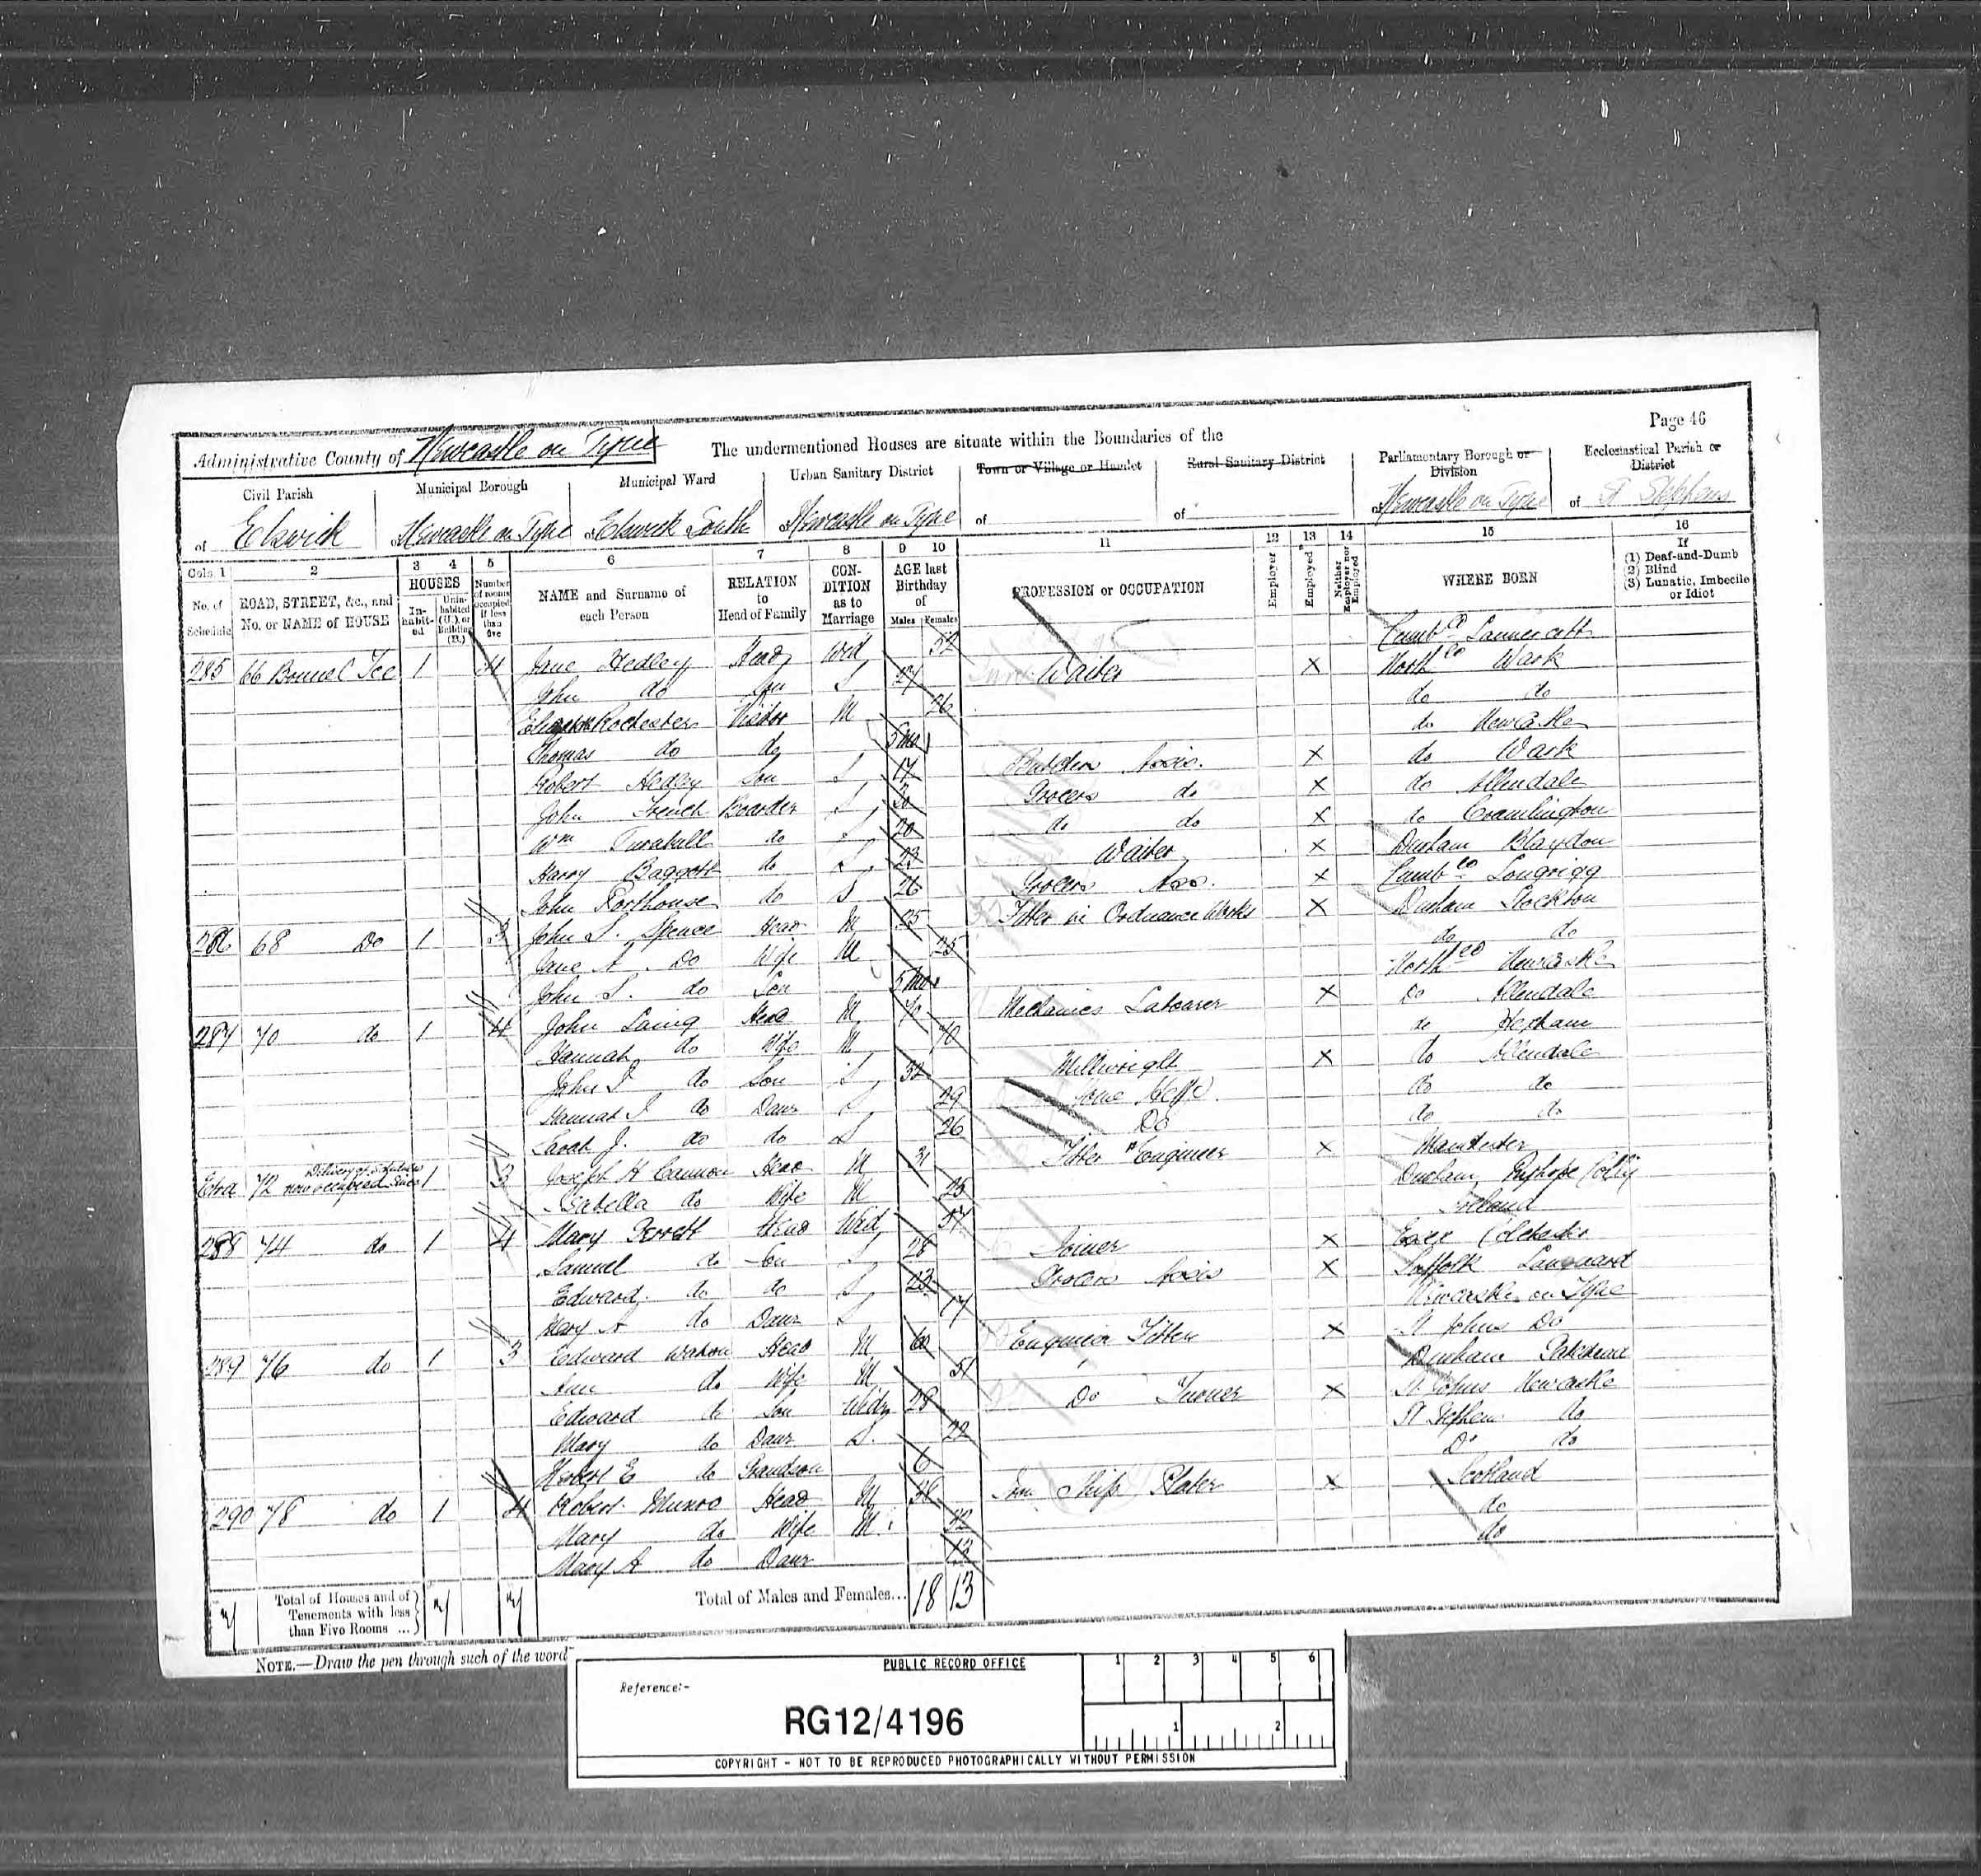 Page 46
Administrative County of Newcastle on Tyne
The undermentioned Houses are situate within the Boundaries of the
Civil Parish
of Elswick
Municipal Borough
of Newcastle on Tyne
Municipal Ward
of Elswick South
Urban Sanitary District
of Newcastle on Tyne
Town or Village or Hamlet
of
Rural Sanitary District
of
Parliamentary Borough or Division
of Newcastle on Tyne
Ecclesiastical Parish or District
of St Stephens
Cols. 1 2 3 4 5 6 7 8 9 10 11 12 13 14 15 16
No. of Schedule
ROAD, STREET, &c., and No. or NAME of HOUSE
HOUSES
In-habit-ed
Unin-habited (U.), or Building (B.)
Number of rooms occupied if less than five
NAME and Surname of each Person
RELATION to Head of Family
CON-DITION as to Marriage
AGE last Birthday of
Males Females
PROFESSION or OCCUPATION
Employer
Employed
Neither Employer nor Employed
WHERE BORN
If
(1) Deaf-and-Dumb
(2) Blind
(3) Lunatic, Imbecile or Idiot
285 66 Tce 1 4 Jane Hedley Head Wid 52 Cumb
John do Son S 27 Waiter X North Co Wark
Rochester Visitor M 26 do do
Thomas do do 5 mo do Newcastle
Robert Hedley Son S 17 Assis. X do Wark
John French Boarder S 20 Grocers do X do Allendale
Wm Turnbull do S 20 do do X do Cramlington
Harry Baggott do S 23 Waiter X Durham Blaydon
John Porthouse do S 26 Grocers Ass. X Cumb Co Longrigg
286 68 Do 1 3 John S. Spence Head M 25 Fitter in Ordnance Works X Durham Stockton
Jane A. Do Wife M 25 do do
John S. do Son 5 mo North Co Newcastle
287 70 do 1 4 John Laing Head M 70 Mechanics Labourer X Do Allendale
Hannah do Wife M 70 do Hexham
John J do Son S 32 Millwright X do Allendale
Hannah J do Daur S 29 do do
Sarah J. do do S 26 Do do do
Extra 72 now occupied since 1 3 Joseph H Cannon Head M 31 Fitter Engineer X Manchester
Isabella do Wife M 25 Durham
288 74 do 1 4 Mary Head Wid 57 Ireland
Samuel do Son S 28 Joiner X Essex Colchester
Edward do do S 23 Grocers Assis X Suffolk
Mary A do Daur S 17 Newcastle on Tyne
289 76 do 1 3 Edward Watson Head M 60 Engineer Fitter X St Johns Do
Ann do Wife M 51 Durham Gateshead
Edward do Son Widr 28 Do Turner X St Johns Newcastle
Mary do Daur S. 22 St Stephen do
Robert E do Grandson 6 Do do
290 78 do 1 4 Robert Munro Head M Iron Ship Plater X Scotland
Mary do Wife M do
Mary A do Daur 13 do
7 Total of Houses and of Tenements with less than Five Rooms ... 7 7 Total of Males and Females... 18 13
NOTE.—Draw the pen through such of the word
PUBLIC RECORD OFFICE
Reference:-
RG12/4196
1 2 3 4 5 6
1 2
COPYRIGHT - NOT TO BE REPRODUCED PHOTOGRAPHICALLY WITHOUT PERMISSION